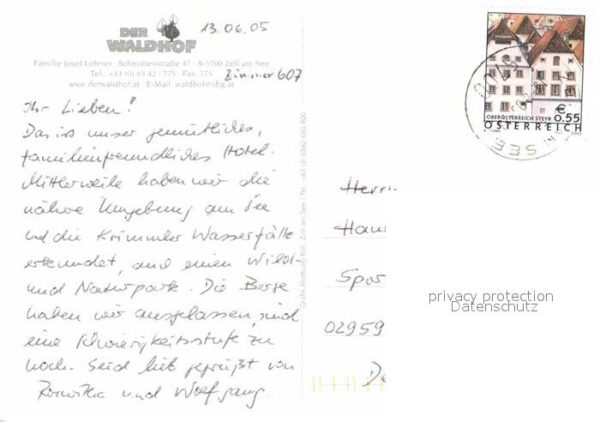 DER
WALDHOF
Familie Josef Loferer · Schmittenstraße 47 · A-5700 Zell am See
Tel. +43 (0) 65 42 / 775 · Fax: 775
www.derwaldhof.at E-Mail: waldhof@sbg.at
13.06.05
Zimmer 607
Ihr Lieben!
Das ist unser gemütliches,
familienfreundliches Hotel.
Mittlerweile haben wir die
nähere Umgebung am See
und die Krimmler Wasserfälle
erkundet, und einen Wild-
und Naturpark. Die Berge
haben wir ausgelassen, sind
eine Schwierigkeitsstufe zu
hoch. Seid lieb gegrüßt von
Roswitha und Wolfgang.
€ 0,55
OBERÖSTERREICH STEYR
ÖSTERREICH
SEE
Herrn
Han
Spor
02959
De
privacy protection
Datenschutz